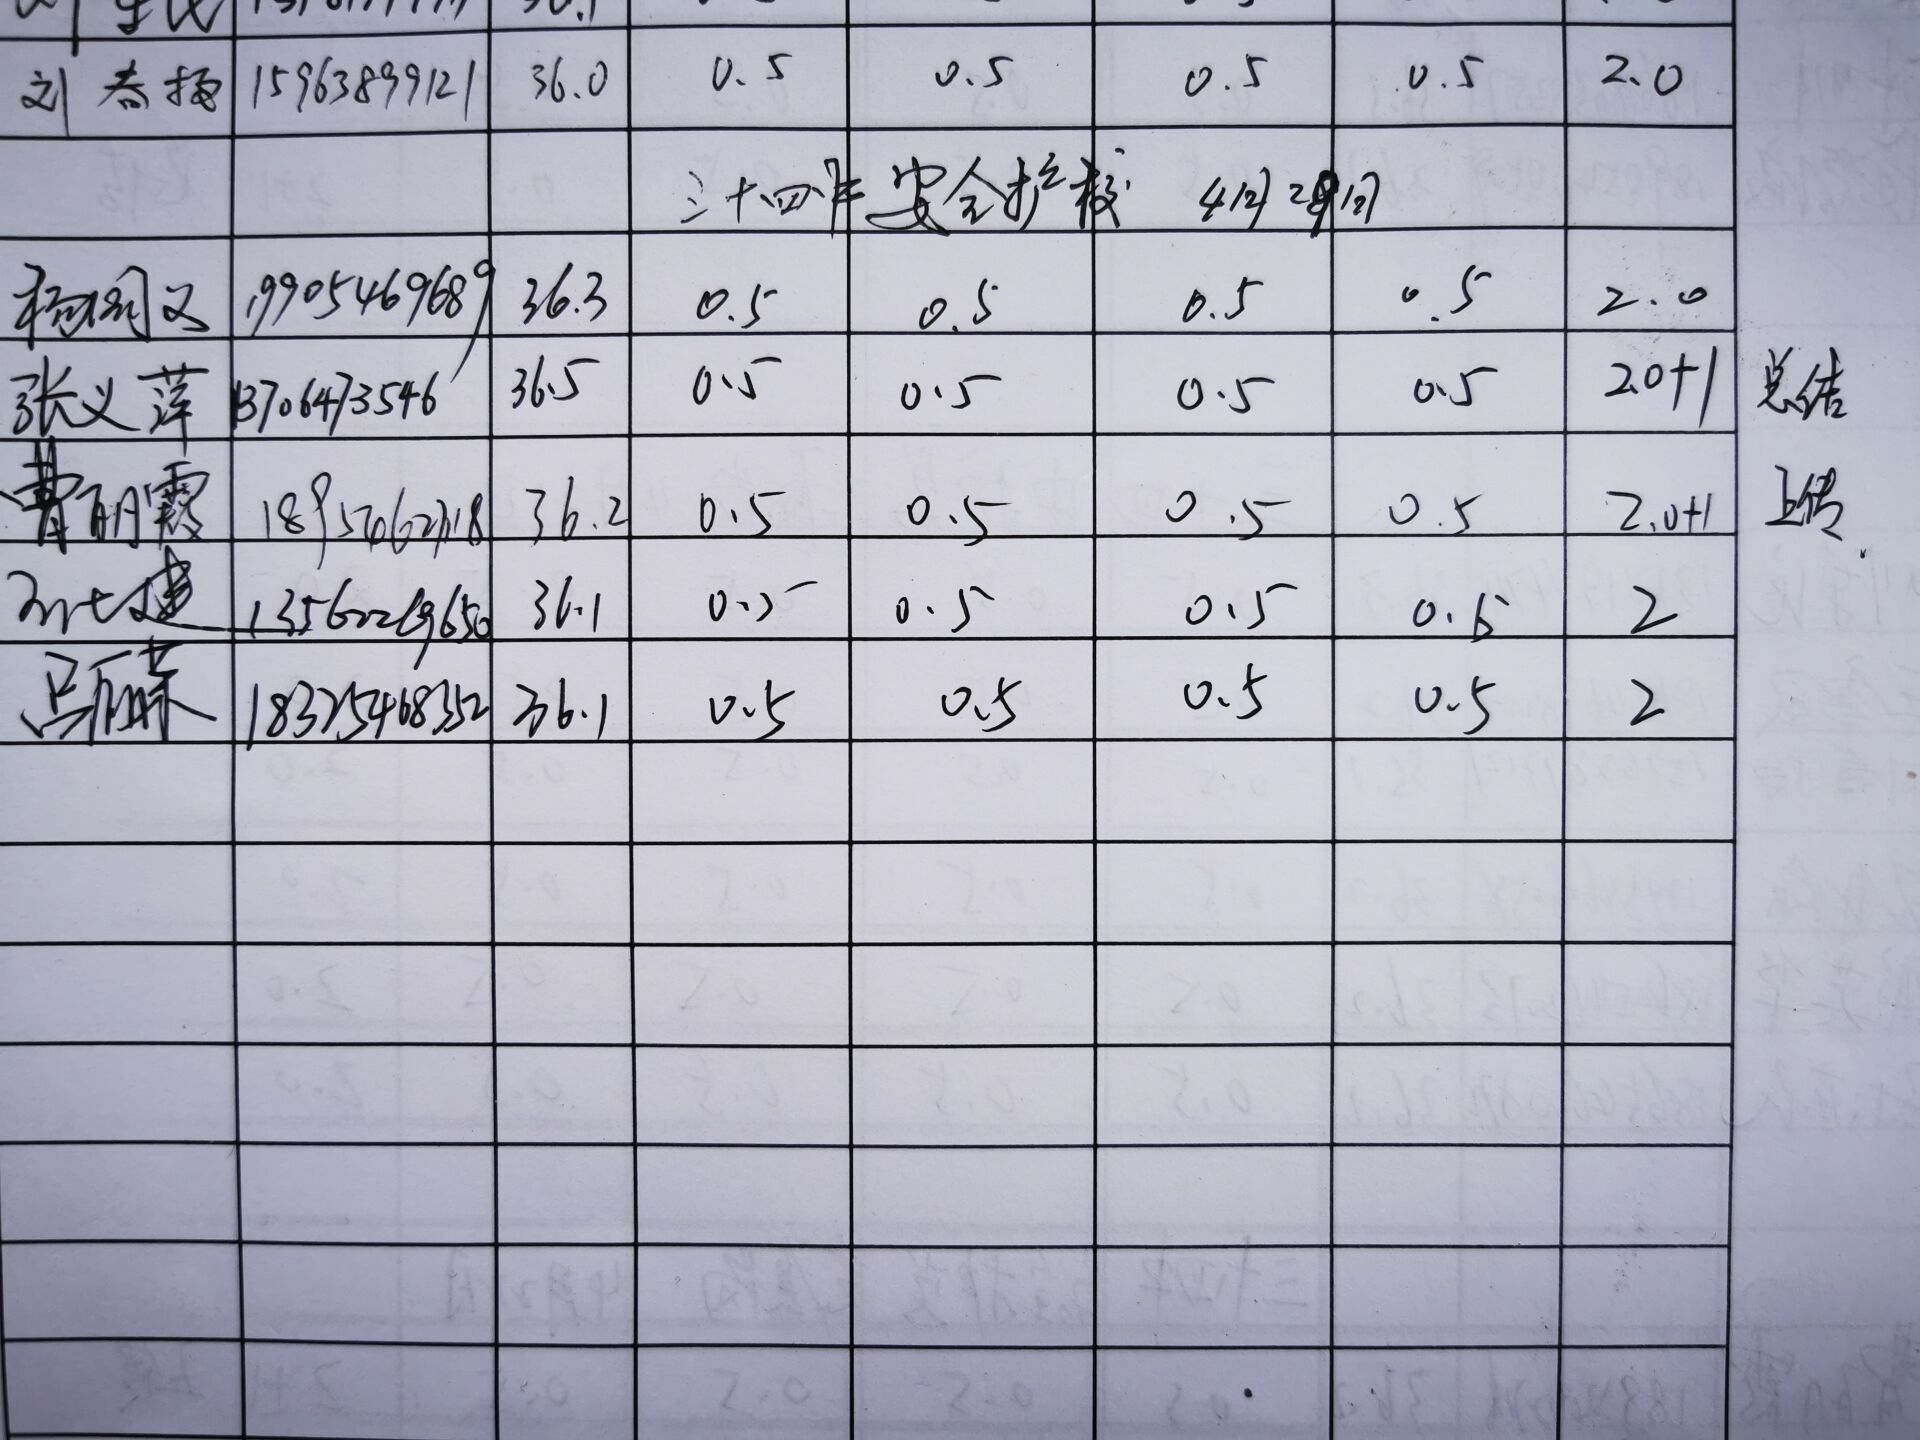 刘春梅 15963899121 36.0 0.5 0.5 0.5 0.5 2.0
三十四中安全护校 4月28日
19905469689 36.3 0.5 0.5 0.5 0.5 2.0
张义萍 13706473546 36.5 0.5 0.5 0.5 0.5 2.0+1 总结
曹丽霞 36.2 0.5 0.5 0.5 0.5 2.0+1 上传
36.1 0.5 0.5 0.5 0.5 2
吕丽萍 18325468352 36.1 0.5 0.5 0.5 0.5 2